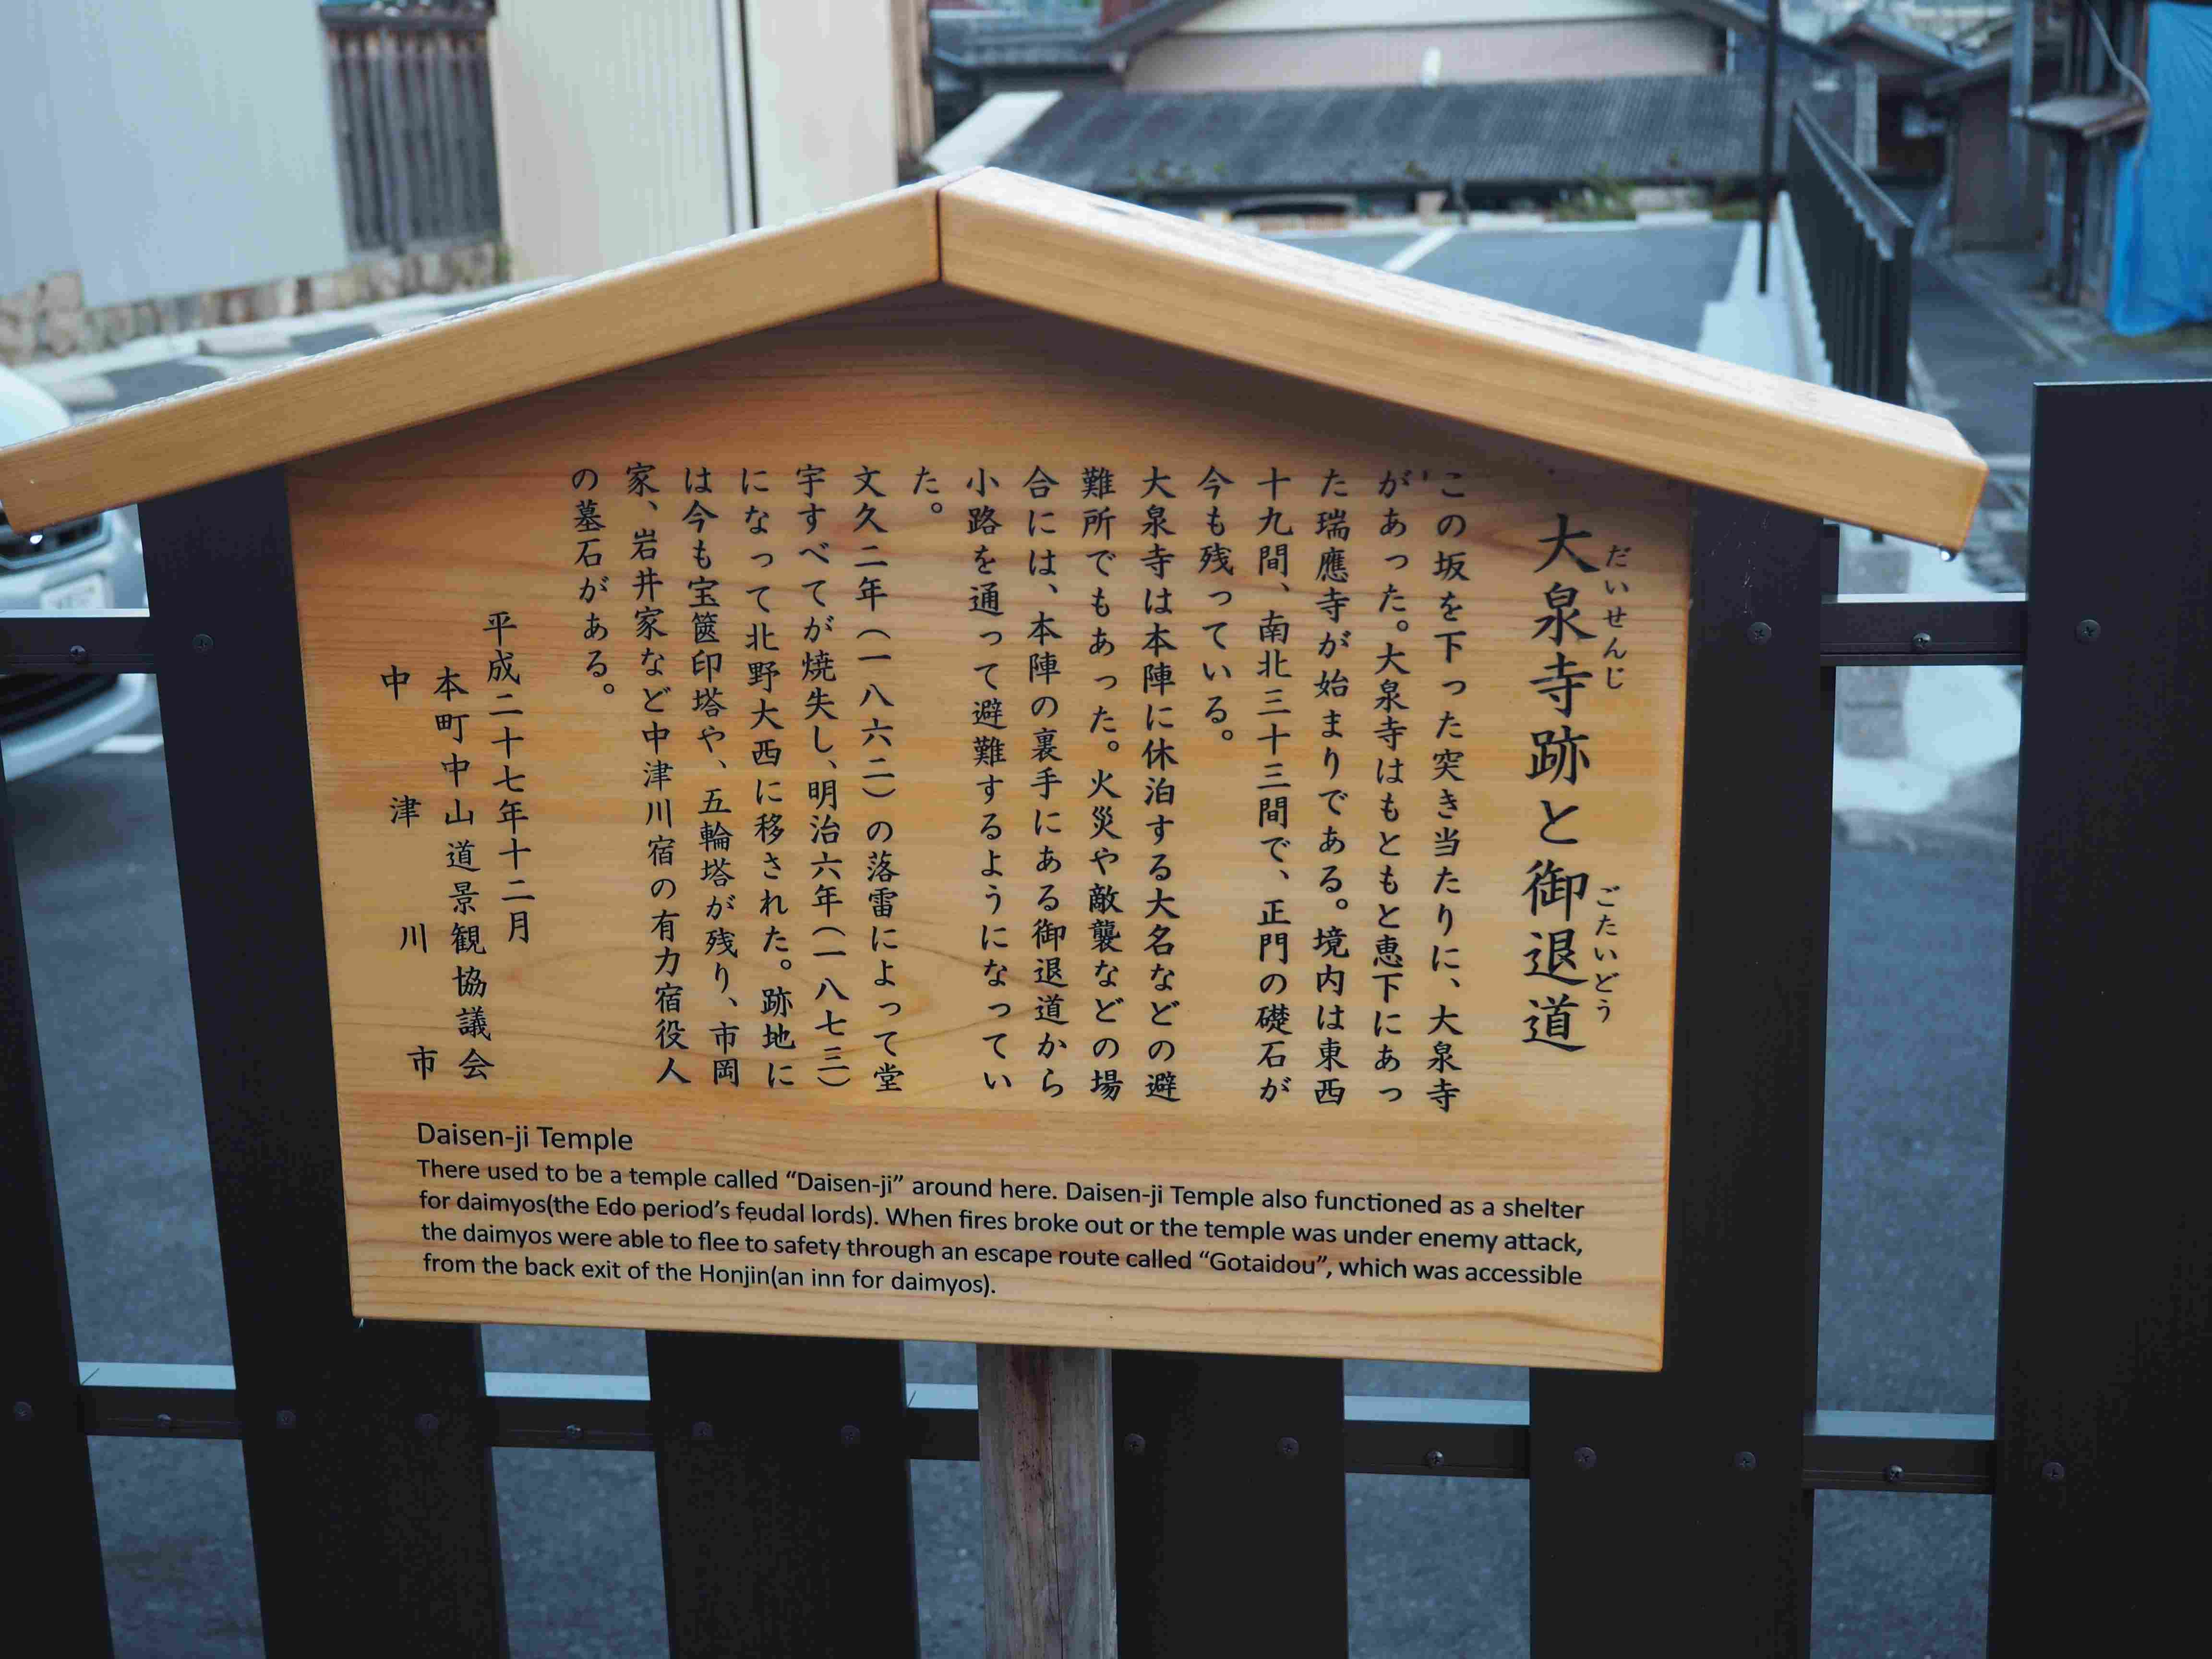 大泉寺跡と御退道
だいせんじ
ごたいどう
この坂を下った突き当たりに、大泉寺
があった。大泉寺はもともと恵下にあっ
た瑞應寺が始まりである。境内は東西
十九間、南北三十三間で、正門の礎石が
今も残っている。
大泉寺は本陣に休泊する大名などの避
難所でもあった。火災や敵襲などの場
合には、本陣の裏手にある御退道から
小路を通って避難するようになってい
た。
文久二年（一八六二）の落雷によって堂
宇すべてが焼失し、明治六年（一八七三）
になって北野大西に移された。跡地に
は今も宝篋印塔や、五輪塔が残り、市岡
家、岩井家など中津川宿の有力宿役人
の墓石がある。
平成二十七年十二月
本町中山道景観協議会
中津川市
Daisen-ji Temple
There used to be a temple called “Daisen-ji” around here. Daisen-ji Temple also functioned as a shelter
for daimyos(the Edo period’s feudal lords). When fires broke out or the temple was under enemy attack,
the daimyos were able to flee to safety through an escape route called “Gotaidou”, which was accessible
from the back exit of the Honjin(an inn for daimyos).